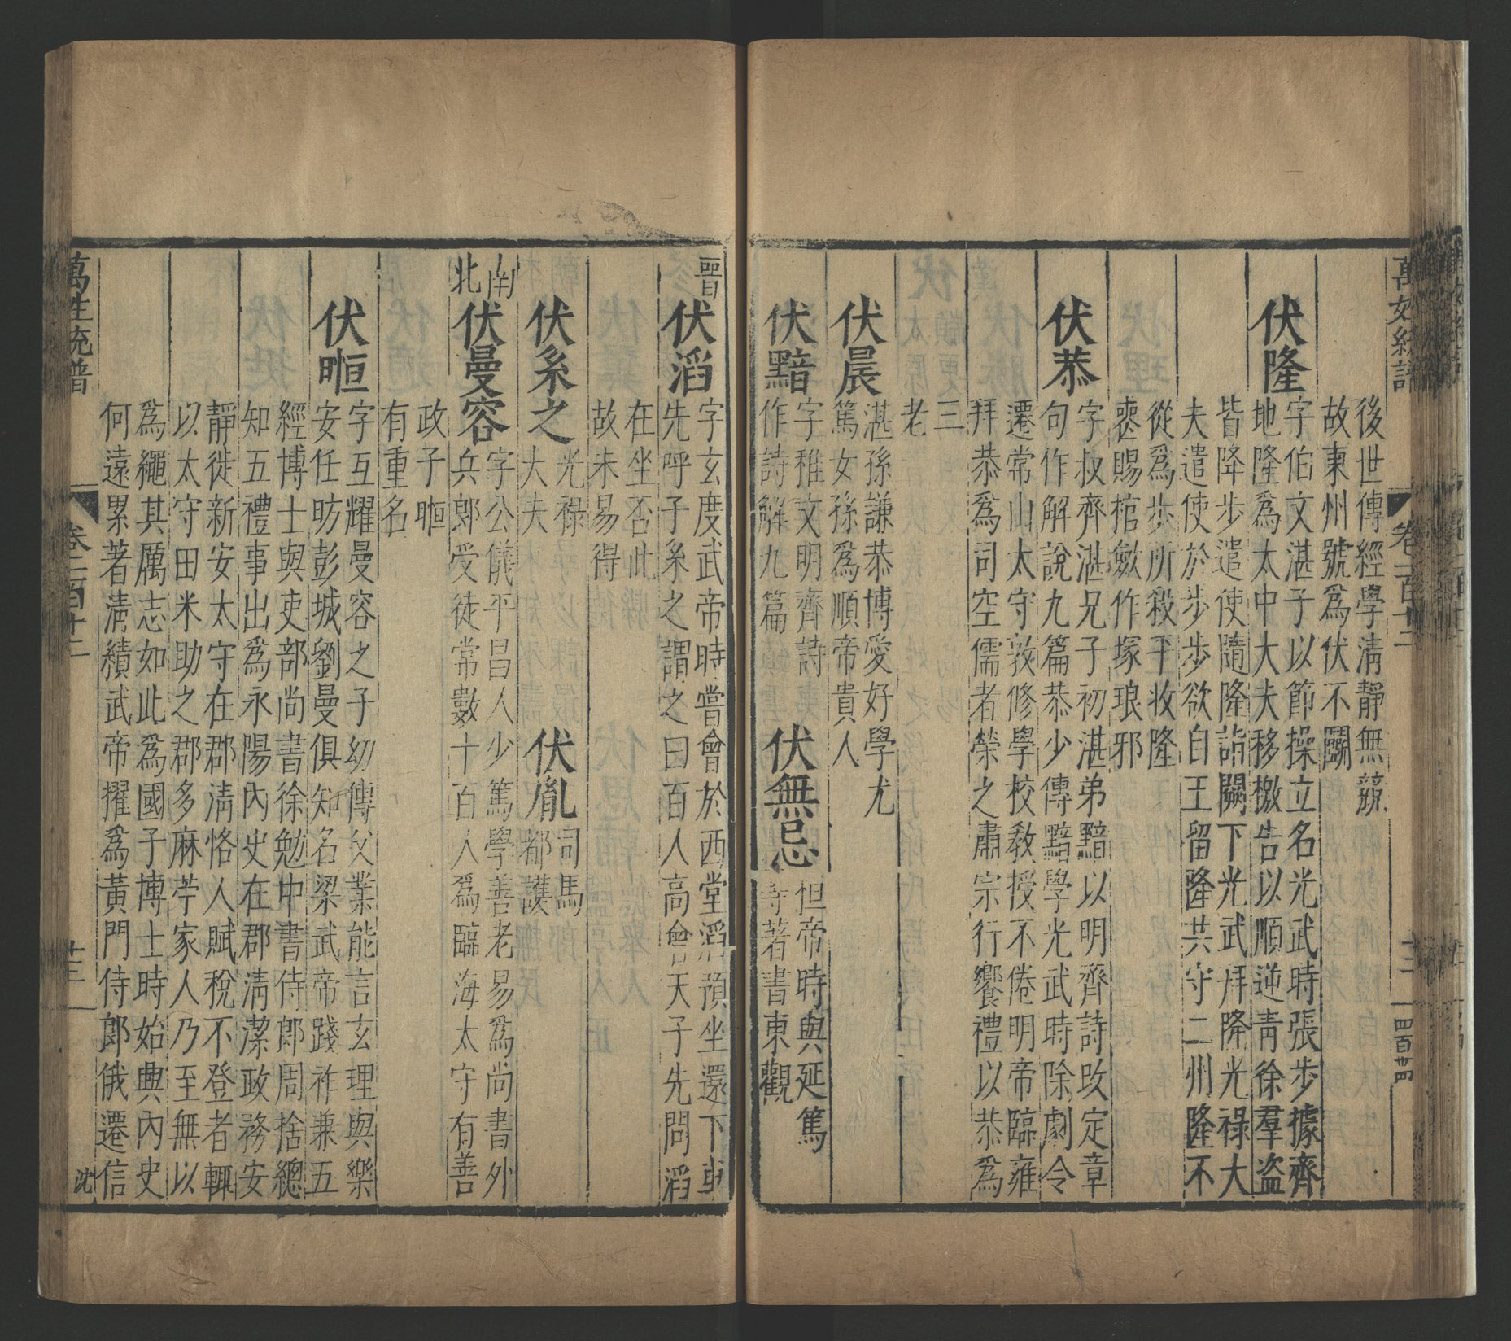 萬姓統譜
卷一百十二
四百廿四
後世傳經學淸靜無競
故東州號爲伏不鬭
伏隆
字伯文湛子以節操立名光武時張步據齊
地隆爲太中大夫移檄告以順逆青徐羣盜
皆降步遣使隨隆詣闕下光武拜隆光祿大
夫遣使於步步欲自王留隆共守二州隆不
從爲步所殺干收隆
喪賜棺斂作塚琅邪
伏恭
字叔齊湛兄子初湛弟黯以明齊詩改定章
句作解說九篇恭少傳黯學光武時除劇令
遷常山太守敦修學校教授不倦明帝臨雍
拜恭爲司空儒者榮之肅宗行饗禮以恭爲
三
老
伏晨
湛孫謙恭博愛好學尤
篤女孫爲順帝貴人
伏黯
字稚文明齊詩
作詩解九篇
伏無忌
但帝時與延篤
等著書東觀
晉
伏滔
字玄度武帝時嘗會於西堂滔預坐還下車
先呼子系之謂之曰百人高會天子先問滔
在坐否此
故未易得
伏系之
光祿
大夫
伏胤
司馬
都護
南北
伏曼容
字公儀平昌人少篤學善老易爲尚書外
兵郞受徒常數十百人爲臨海太守有善
政子暅
有重名
伏暅
字互耀曼容之子幼傳父業能言玄理與樂
安任昉彭城劉曼俱知名梁武帝踐祚兼五
經博士與吏部尚書徐勉中書侍郞周捨總
知五禮事出爲永陽內史在郡淸潔政務安
靜徙新安太守在郡淸恪人賦稅不登者輒
以太守田米助之郡多麻苧家人乃至無以
爲繩其厲志如此爲國子博士時始興內史
何遠累著淸績武帝擢爲黃門侍郞俄遷信
萬姓統譜
卷一百十二
沈